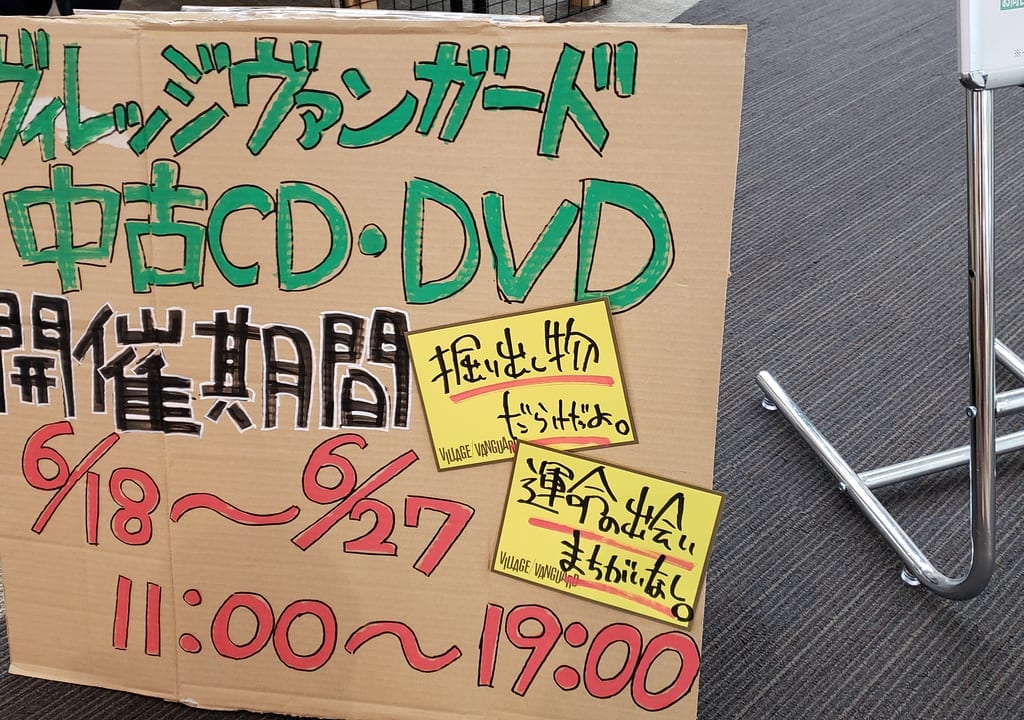 ヴィレッジヴァンガード
中古CD・DVD
開催期間
6/18〜6/27
11:00〜19:00
掘り出し物
だらけだよ。
VILLAGE/VANGUARD
運命の出会い
まちがいなし。
VILLAGE/VANGUARD